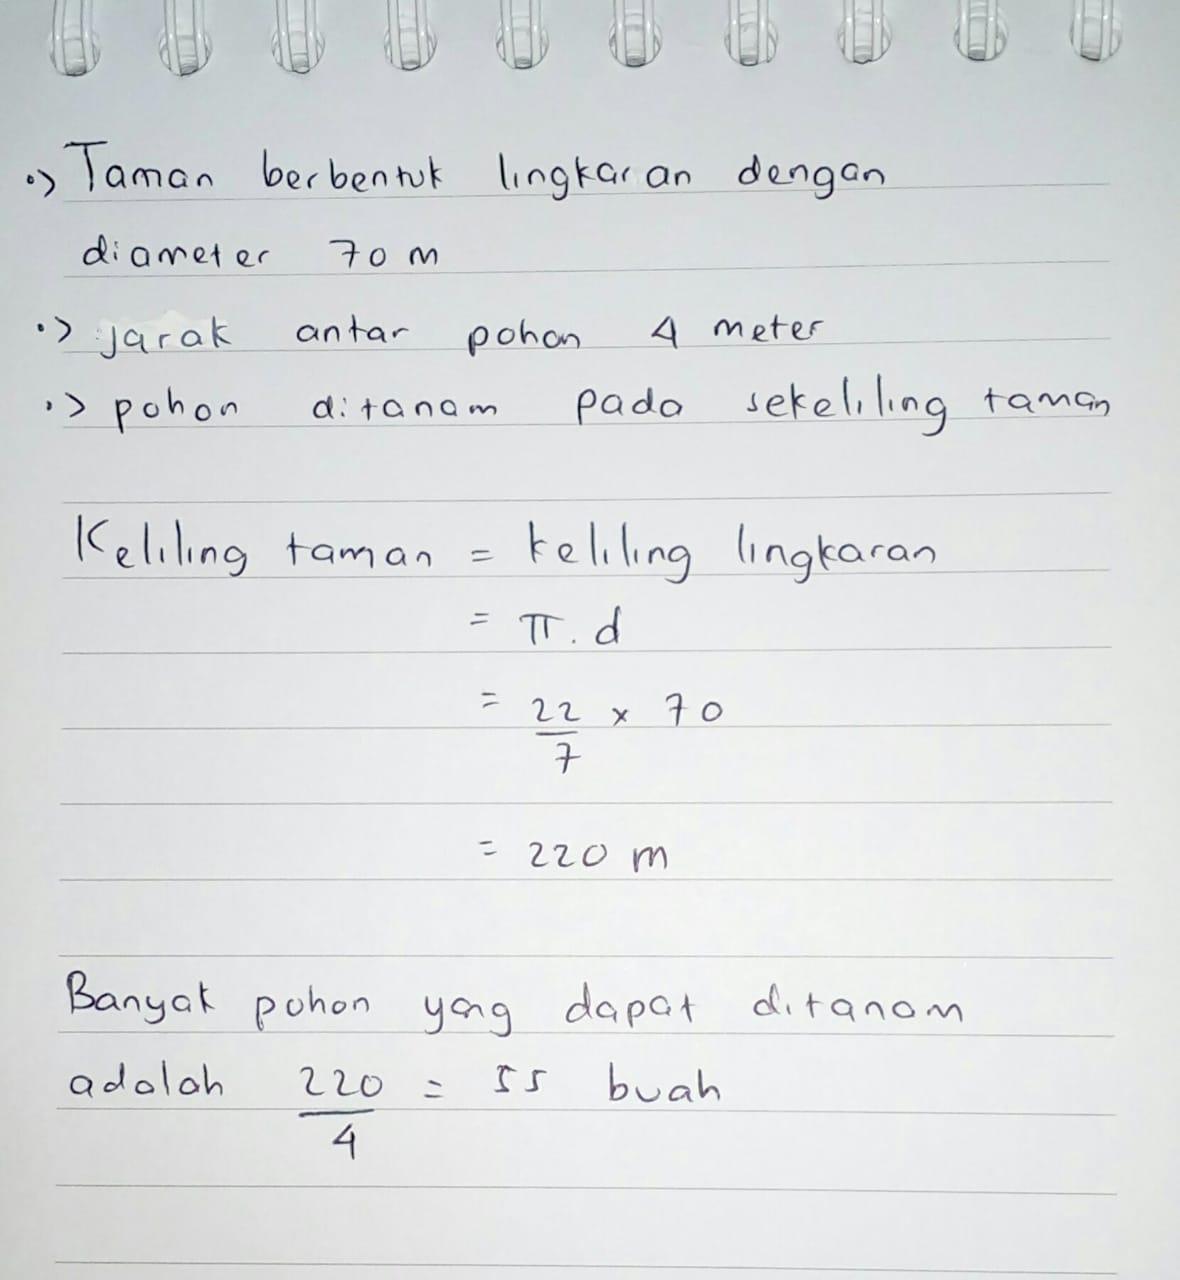 •> Taman berbentuk lingkaran dengan
diameter 70 m
•> jarak antar pohon 4 meter
•> pohon ditanam pada sekeliling taman
Keliling taman = keliling lingkaran
= π . d
= 22/7 x 70
= 220 m
Banyak pohon yang dapat ditanam
adalah 220/4 = 55 buah